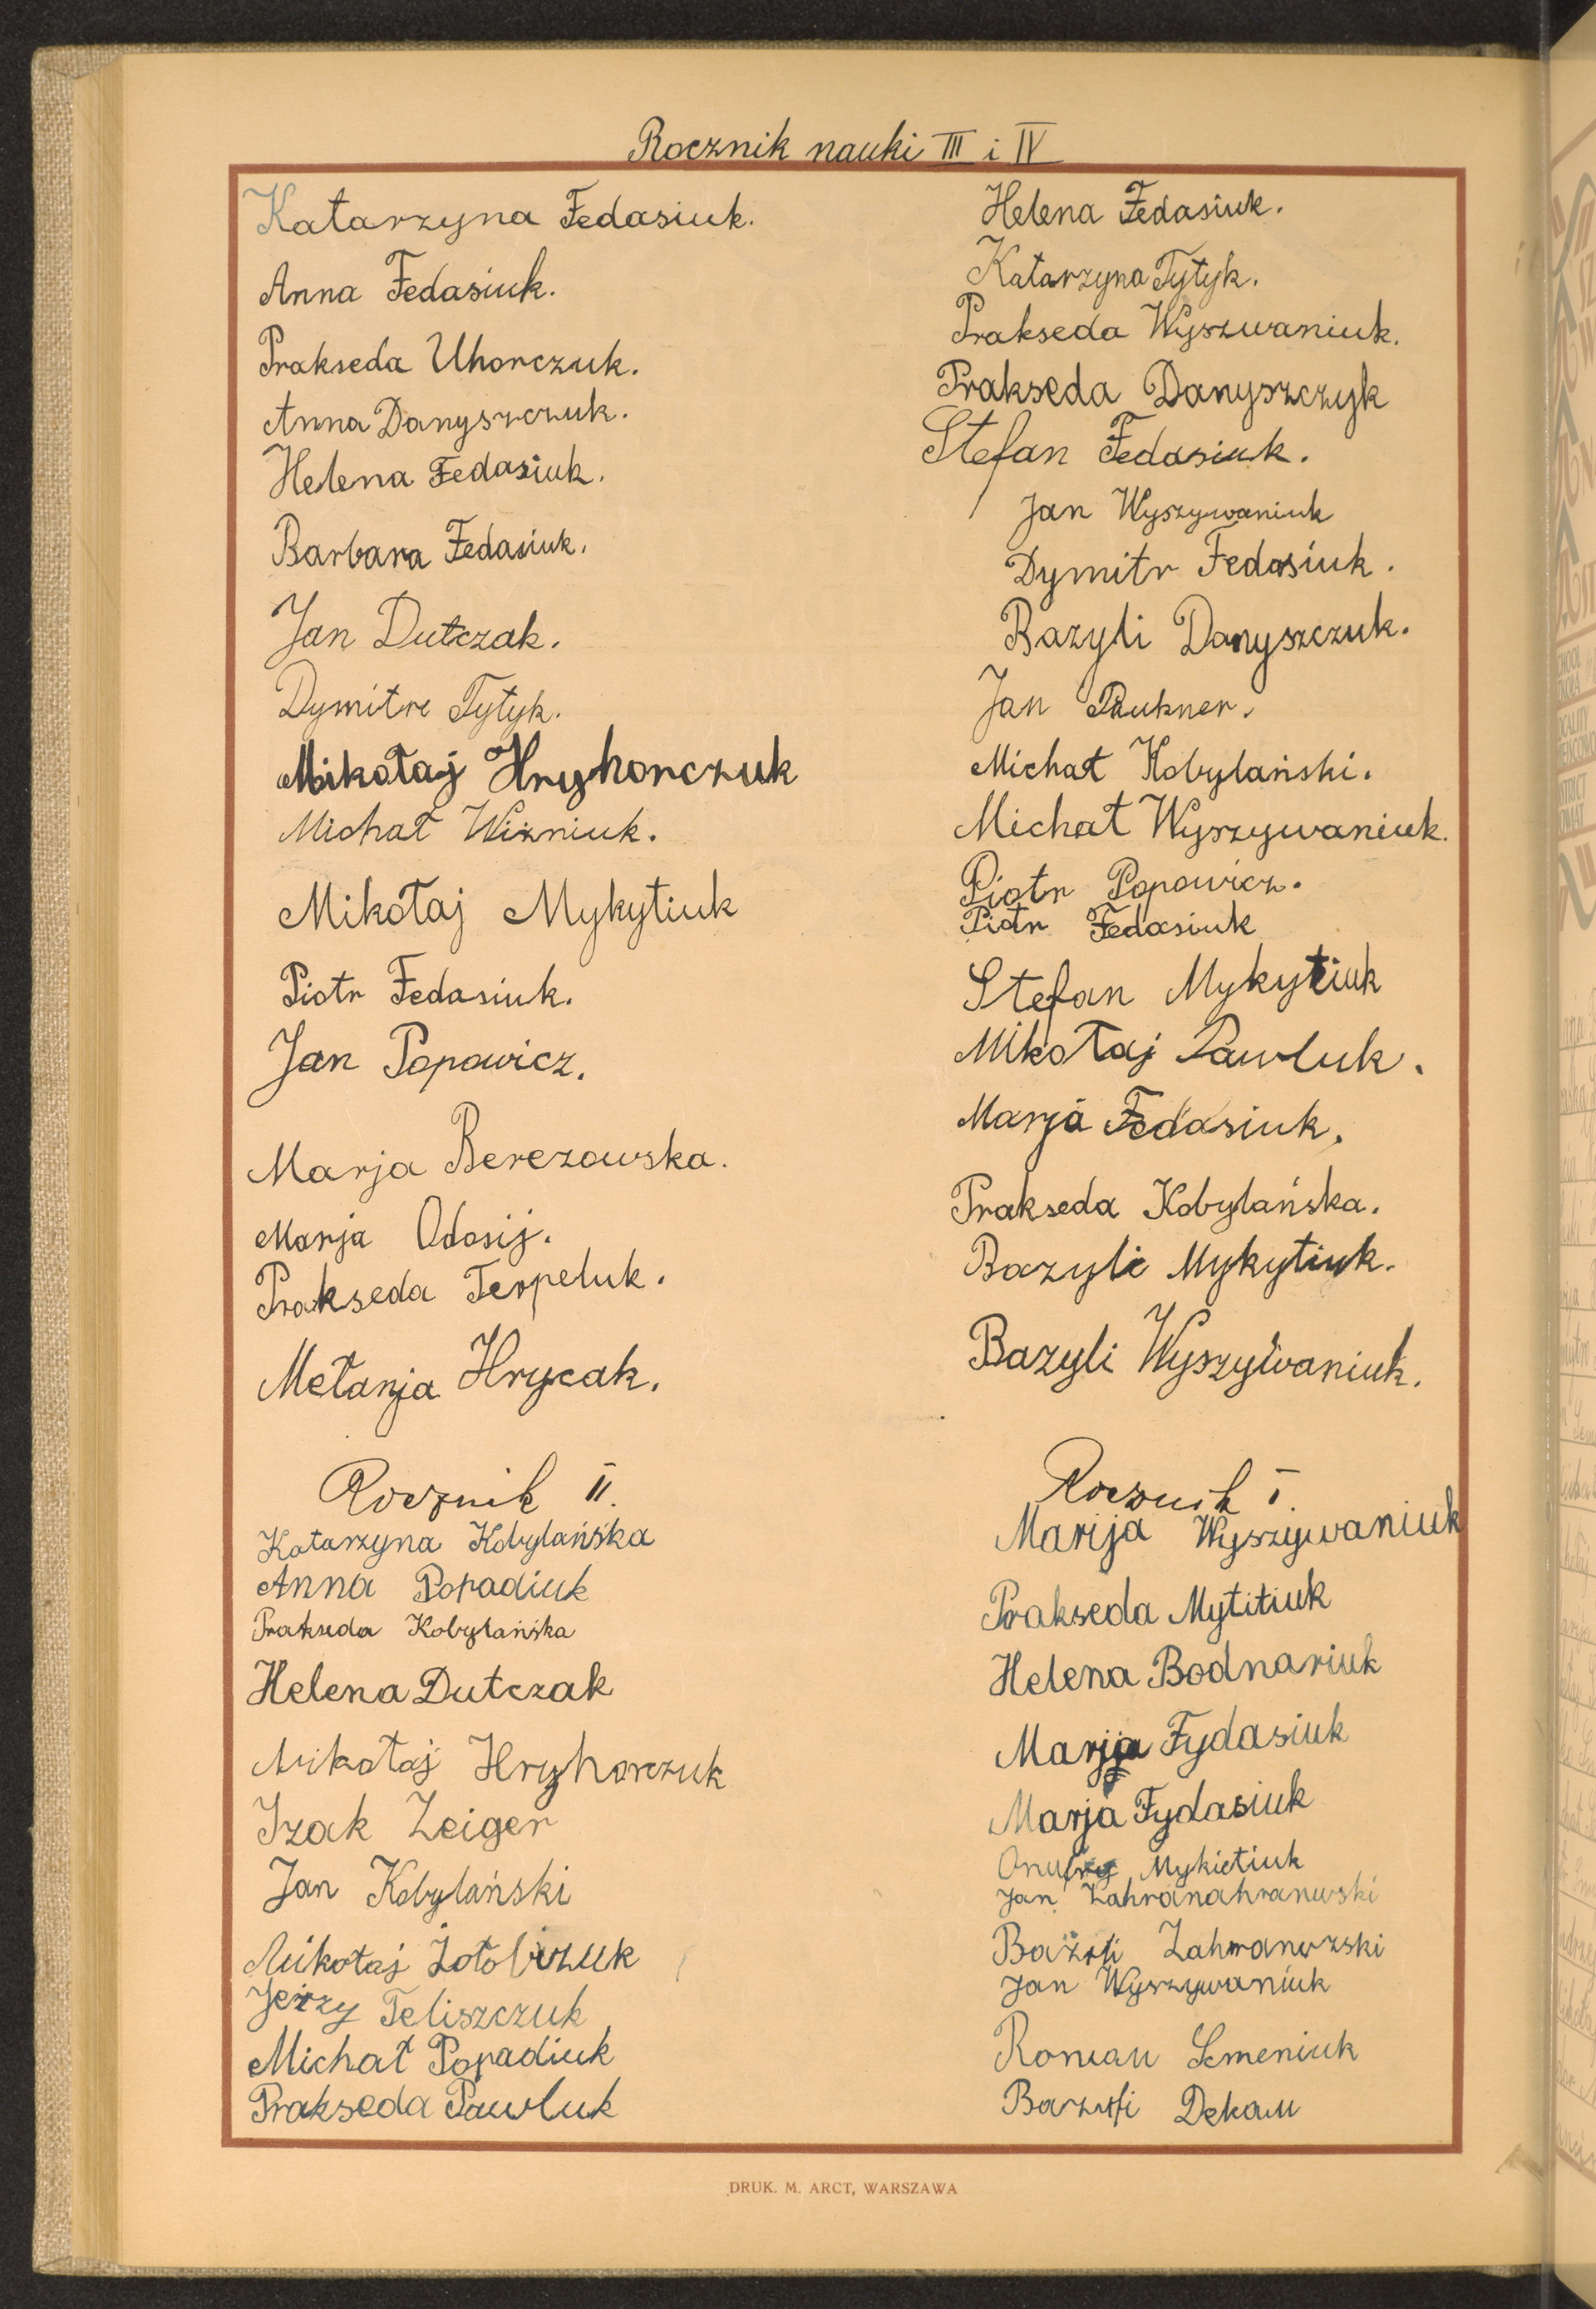 Rocznik nauki III i IV
Katarzyna Fedasiuk.
Anna Fedasiuk.
Prakseda Uhorczuk.
Anna Danyszczuk.
Helena Fedasiuk.
Barbara Fedasiuk.
Jan Dutczak.
Dymitr Tytyk.
Mikołaj Hryhorczuk
Michał Wizniuk.
Mikołaj Mykytiuk
Piotr Fedasiuk.
Jan Popowicz.
Marja Berezowska.
Marja Odosij.
Prakseda Terpeluk.
Mełanja Hrycak.
Helena Fedasiuk.
Katarzyna Tytyk.
Prakseda Wyszwaniuk.
Prakseda Danyszczyk
Stefan Fedasiuk.
Jan Wyszywaniuk
Dymitr Fedasiuk.
Bazyli Danyszczuk.
Jan Paukner.
Michał Kobylański.
Michał Wyszywaniuk.
Piotr Popowicz.
Piotr Fedasiuk
Stefan Mykytiuk
Mikołaj Pawluk.
Marja Fedasiuk.
Prakseda Kobylańska.
Bazyli Mykytiuk.
Bazyli Wyszywaniuk.
Rocznik II.
Katarzyna Kobylańska
Anna Popadiuk
Prakseda Kobylańska
Helena Dutczak
Mikołaj Hryhorczuk
Izak Zeiger
Jan Kobylański
Mikołaj
Jerzy Teliszczuk
Michał Popadiuk
Prakseda Pawluk
Rocznik I.
Marija Wyszywaniuk
Prakseda Mytitiuk
Helena Bodnariuk
Marja Fydasiuk
Marja Fydasiuk
Onufry Mykietiuk
Jan
Jan Wyszywaniuk
Roman Semeniuk
Dekau
DRUK. M. ARCT, WARSZAWA